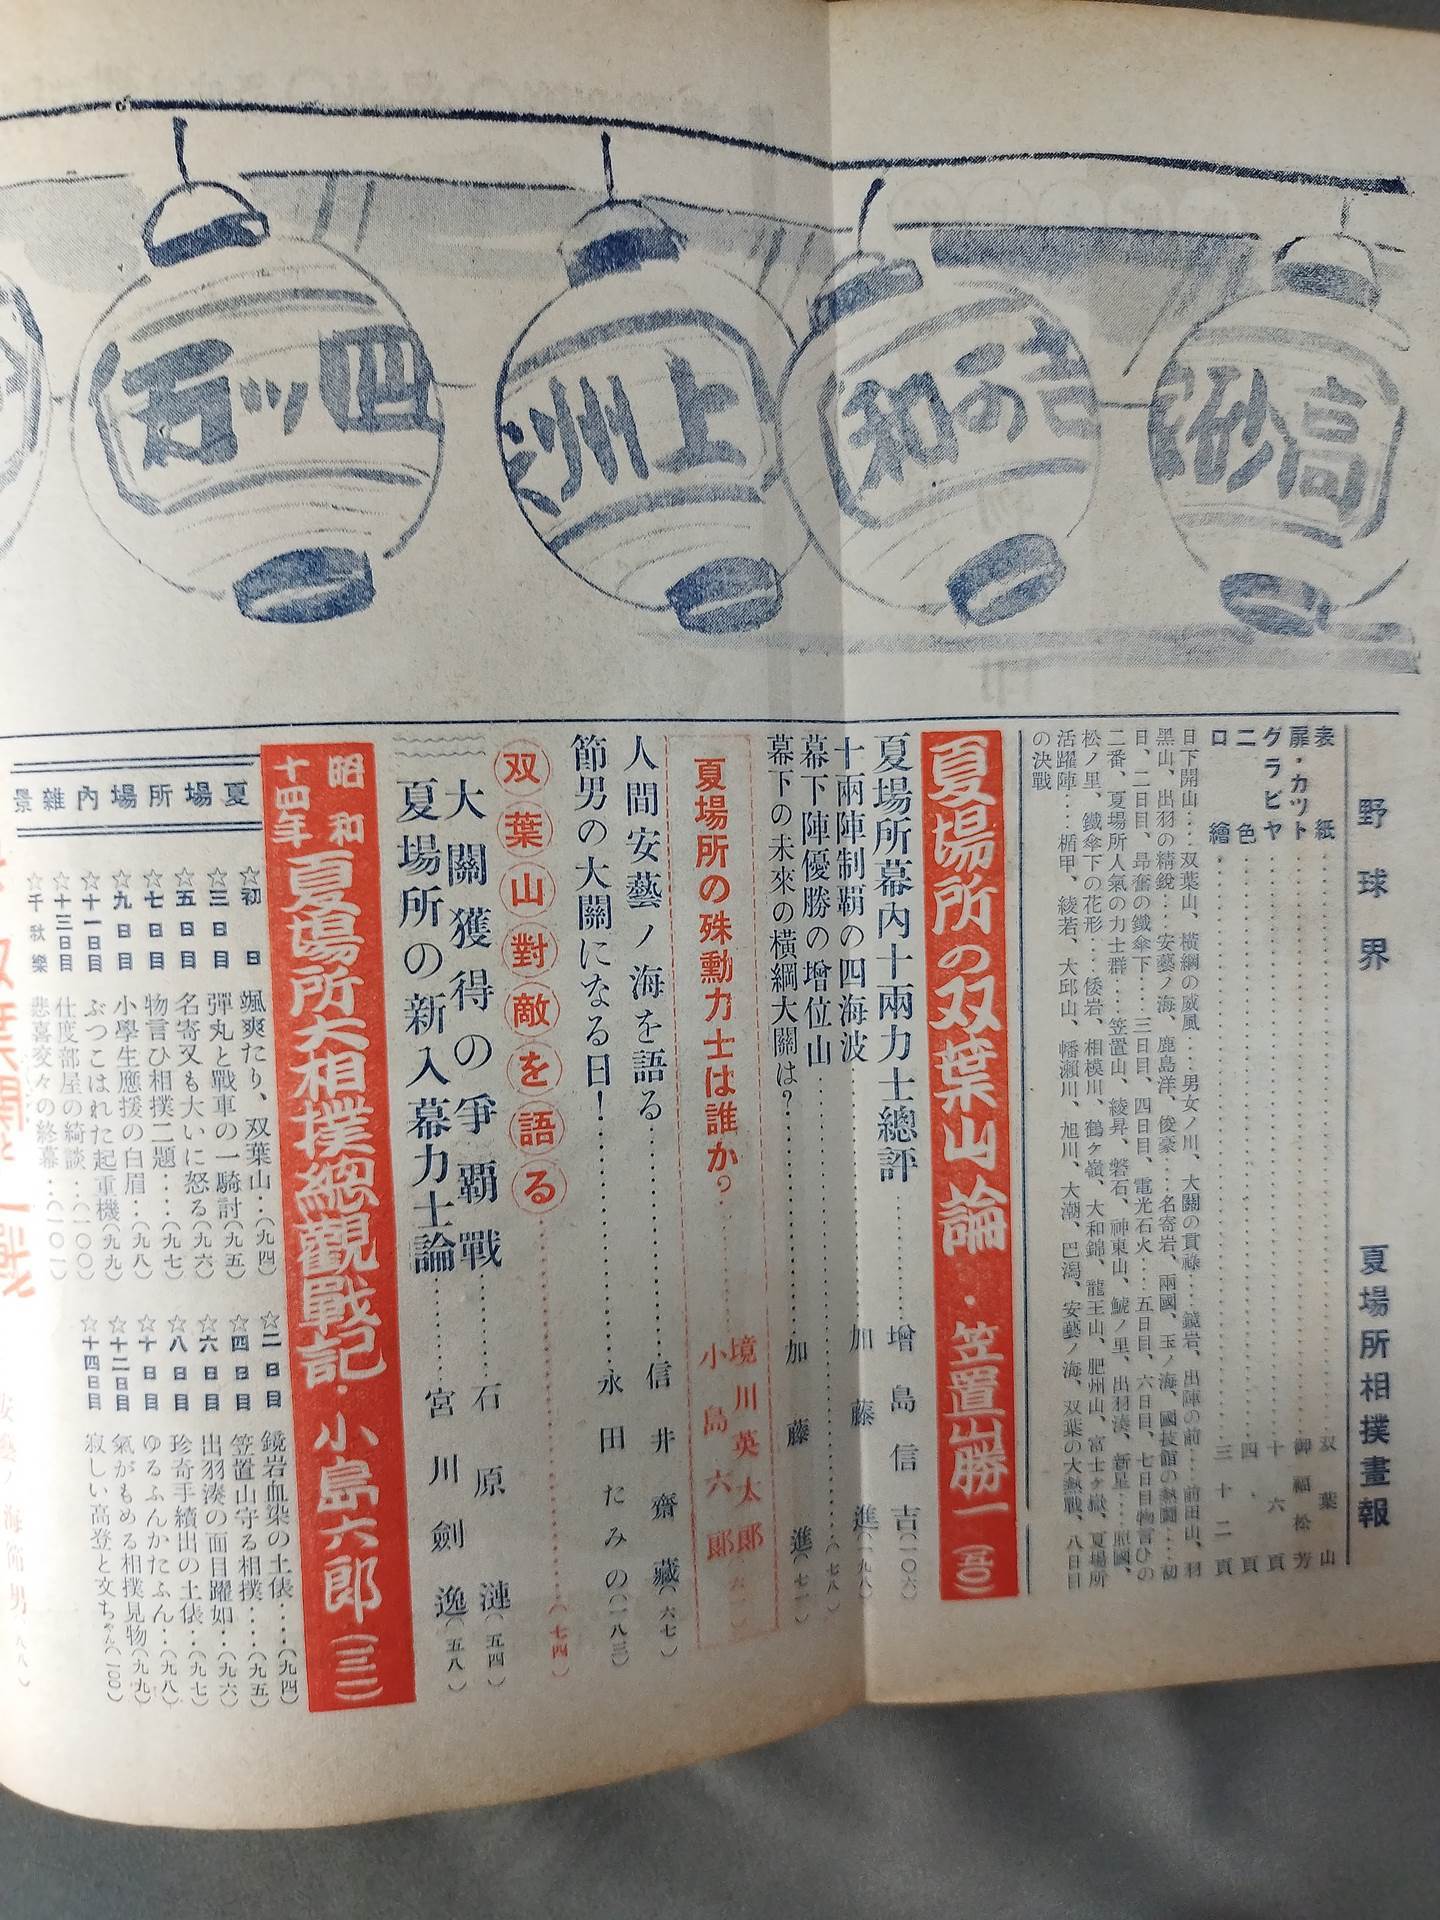 高砂
吉の和
上洲
四ツ石
野球界 夏場所相撲畫報
表紙 双葉山
扉・カツト 御福松芳
グラビヤ 十六頁
二色 四頁
口繪 三十二頁
日下開山……双葉山、橫綱の威風……男女ノ川、大關の貫祿……鏡岩、出陣の前……前田山、羽
黑山、出羽の精銳……安藝ノ海、鹿島洋、俊豪……名寄岩、兩國、玉ノ海、國技館の熱鬪……初
日、二日目、昻奮の鐵傘下……三日目、四日目、電光石火……五日目、六日目、七日目物言ひの
二番、夏場所人氣の力士群……笠置山、綾昇、磐石、神東山、鯱ノ里、出羽湊、新星……照國、
松ノ里、鐵傘下の花形……倭岩、相模川、鶴ケ嶺、大和錦、龍王山、肥州山、富士ケ嶽、夏場所
活躍陣……楯甲、綾若、大邱山、幡瀨川、旭川、大潮、巴潟、安藝ノ海、双葉の大熱戰、八日目
の決戰
夏場所の双葉山論・笠置山勝一(五〇)
夏場所幕內十兩力士總評……增島信吉(一〇六)
十兩陣制覇の四海波……加藤進(一九八)
幕下陣優勝の增位山……(七八)
幕下の未來の橫綱大關は?……加藤進(七一)
夏場所の殊勳力士は誰か?……境川英太郎
小島六郎
人間安藝ノ海を語る……信井齋藏(六七)
節男の大關になる日!……永田たみの(一八三)
双葉山對敵を語る……(七四)
大關獲得の爭覇戰……石原漣(五四)
夏場所の新入幕力士論……宮川劍逸(五八)
昭和十四年 夏場所大相撲總觀戰記・小島六郎(三二)
夏場所場內雜景
☆初日 颯爽たり、双葉山…(九四)
☆二日目 鏡岩血染の土俵……(九四)
☆三日目 彈丸と戰車の一騎討(九五)
☆四日目 笠置山守る相撲……(九五)
☆五日目 名寄又も大いに怒る(九六)
☆六日目 出羽湊の面目躍如…(九六)
☆七日目 物言ひ相撲二題……(九七)
☆八日目 珍奇手續出の土俵…(九七)
☆九日目 小學生應援の白眉…(九八)
☆十日目 ゆるふんかたふん…(九八)
☆十一日目 ぶつこはれた起重機(九九)
☆十二日目 氣がもめる相撲見物(九九)
☆十三日目 仕度部屋の綺談…(一〇〇)
☆十四日目 寂しい高登と文ちやん(一〇〇)
☆千秋樂 悲喜交々の終幕…(一〇一)